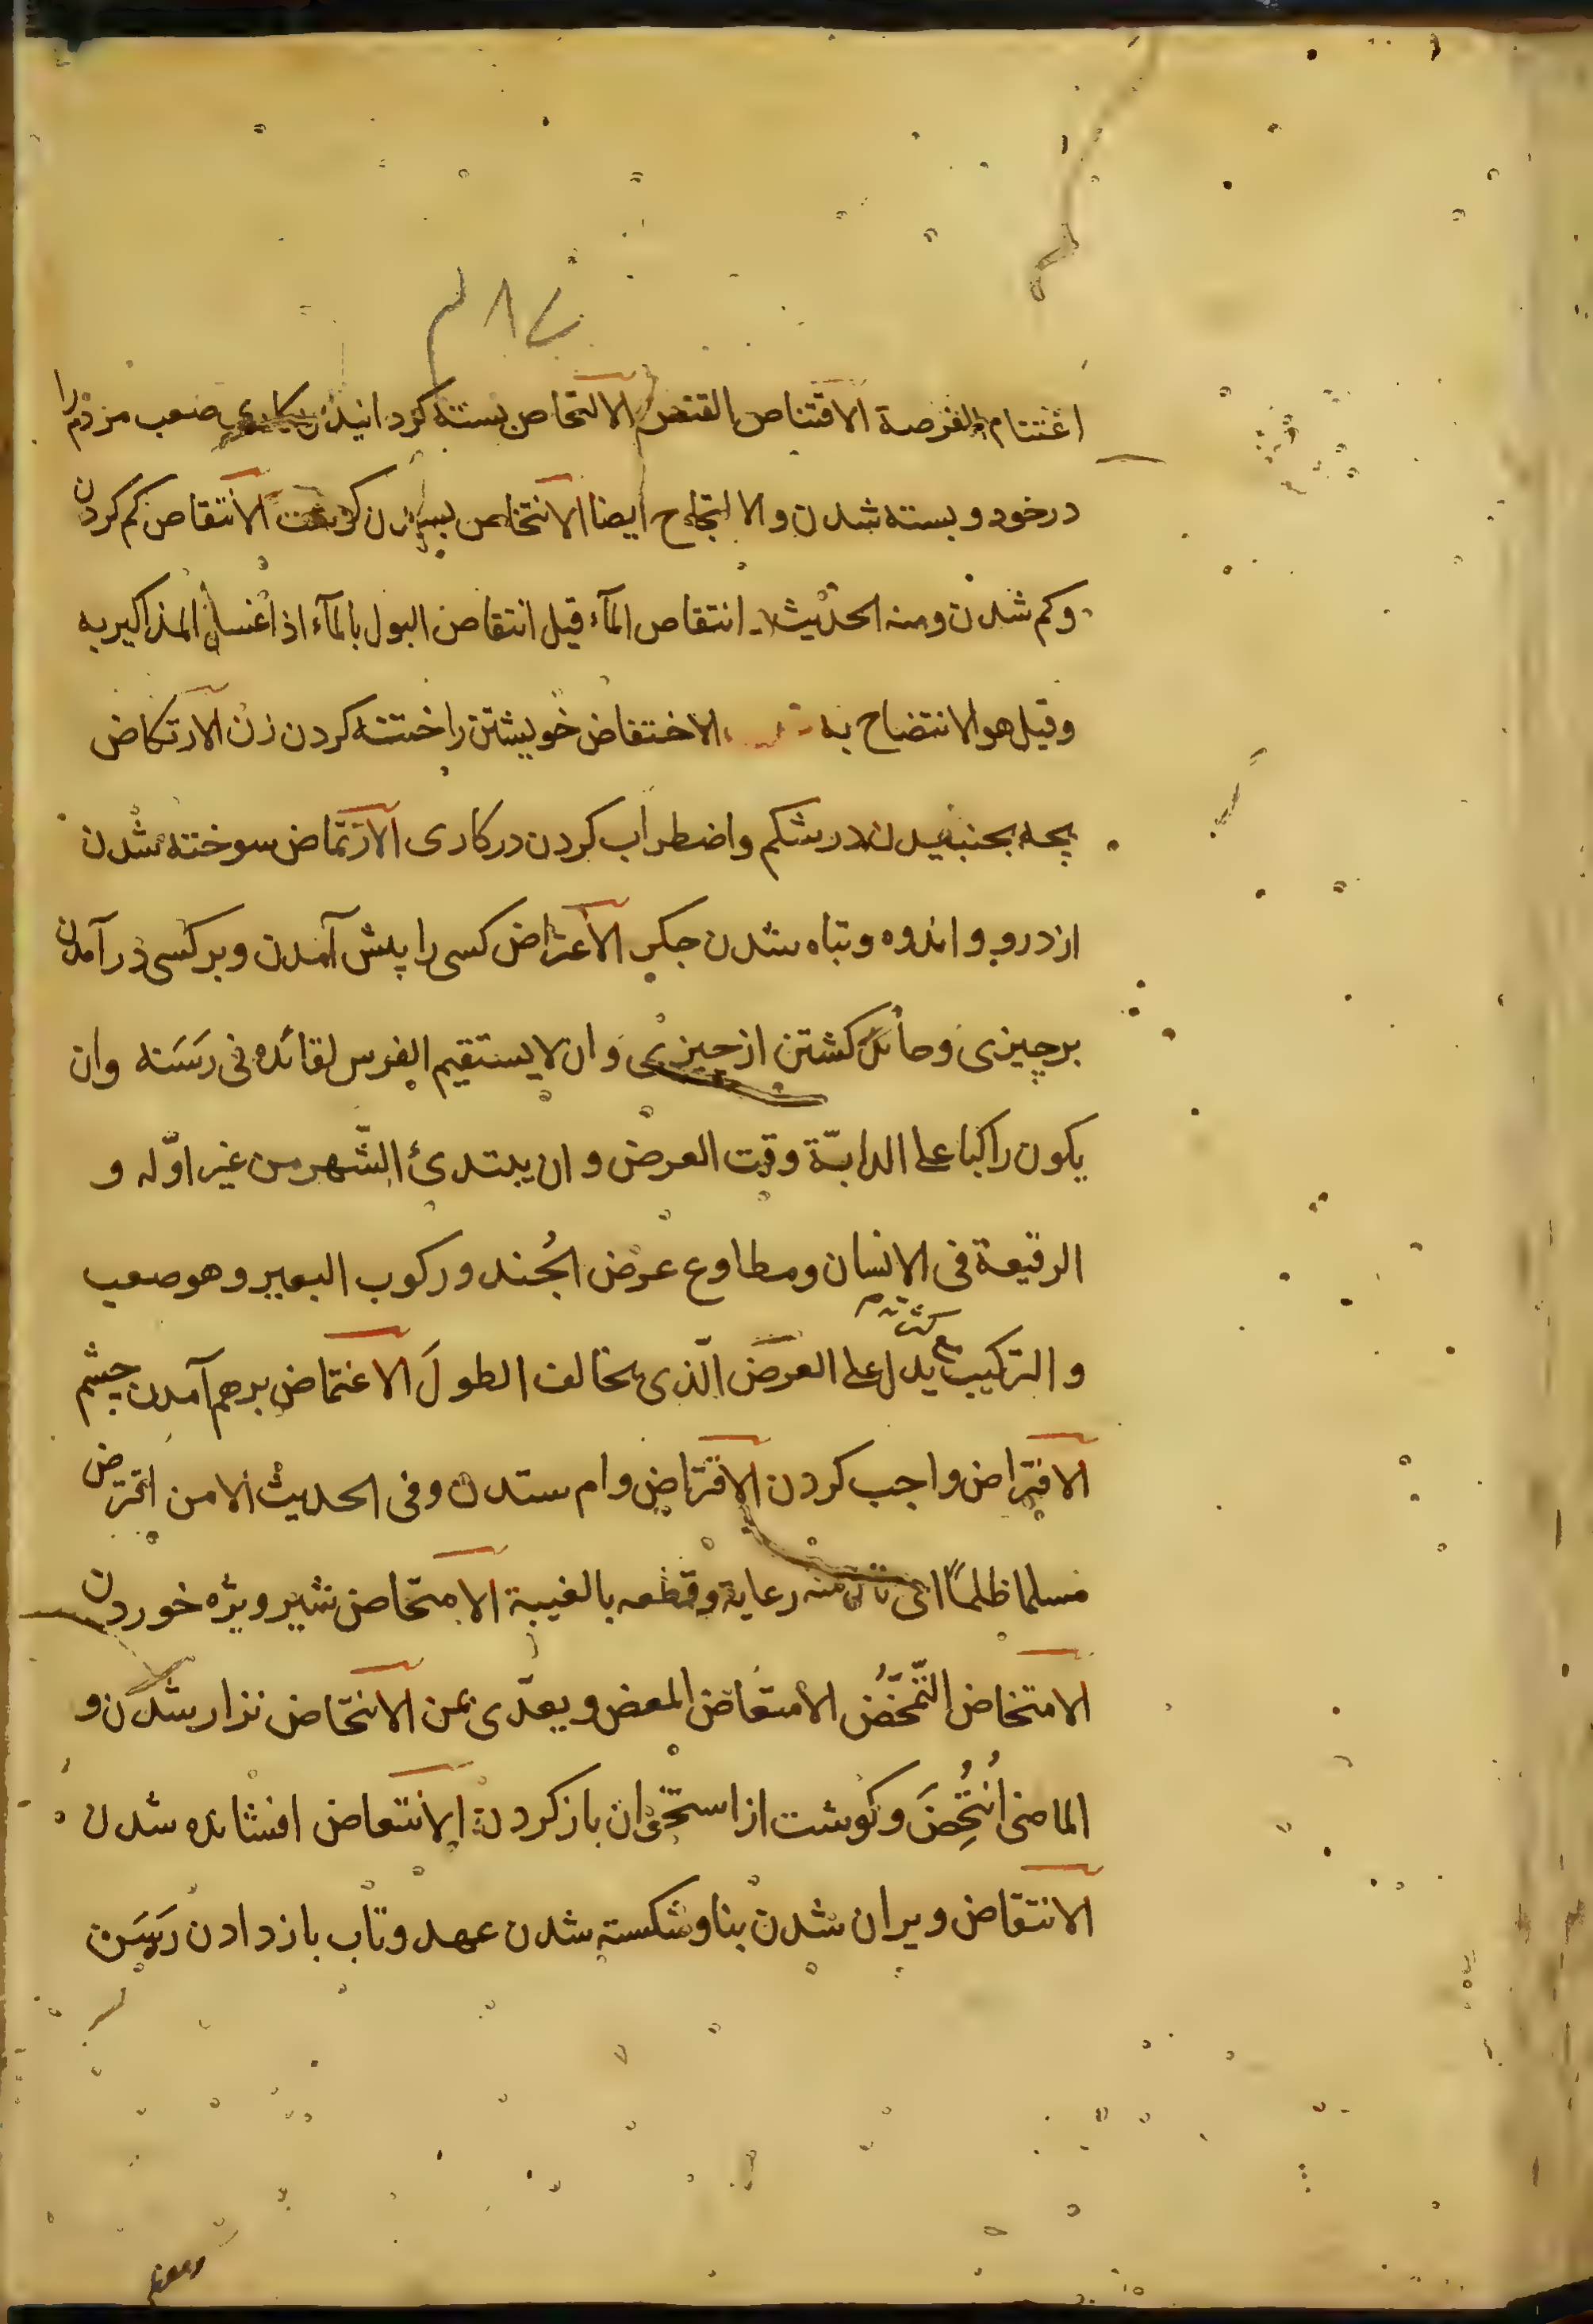 اغتنام الفرصة الاقتناص القنص الالتحاص بسته كردانيدن كارى صعب مردم را
درخود و بسته شدن و الالتحاج ايضا الانتخاص بسيار شدن كوشت الانتقاص كم كردن
وكم شدن ومنه الحديث انتقاص المآء قيل انتقاص البول بالمآء اذا غسل المذاكير به
وقيل هو الانتضاح به الاختفاض خويشتن را ختنه كردن زن الارتكاض
بچه بجنبيدن در شكم واضطراب كردن دركارى الارتماض سوخته شدن
از درو و اندوه وتباه شدن جكر الاعتراض كسى را پيش آمدن وبر كسى درآمدن
برچيزى وحائل كشتن از چيزى وان لا يستقيم الفرس لقائده فى رَسَنه وان
يكون راكبا على الدابّة وقت العرض وان يبتدئ الشّهر من غير اوّله و
الرقيعة فى الانسان ومطاوع عرض الجُند وركوب البعير وهو صعب
و التركيب مع كثرته يدل على العرض الّذى يخالف الطولَ الاغتماض برهم آمدن چشم
الافتراض واجب كردن الاقتراض وام ستدن وفى الحديث الا من اقترض
مسلما ظلماً اى نال منه رعاية وقطعه بالغيبة الامتحاض شير ويژه خوردن
الامتخاض التّمخّضُ الامتعاض المعض ويعدّى بمن الانتحاض نزار شدن و
الماضى اُنتُحِضَ وكوشت از استخوان باز كردن الانتعاض افشانده شدن
الانتقاض ويران شدن بنا وشكسته شدن عهد وتاب باز دادن رَسَن